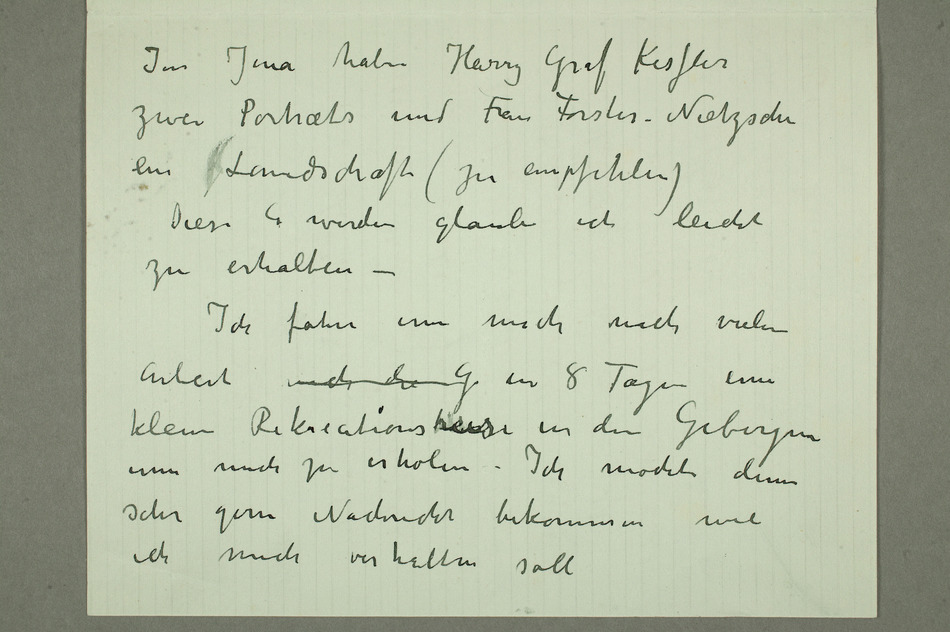 In Jena haben Harry Graf Kessler
zwei Portræts und Frau Førster-Nietzsche
ein Landschaft (zu empfehlen)
Diese 6 werden glaube ich leicht
zu erhalten —
Ich fahre um mich nach vielen
Arbeit nach die G in 8 Tagen eine
kleine Rekreationsreise in den Gebergen
um mich zu erholen - Ich möchte denn
sehr gern Nachricht bekommen wie
ich mich verhalten soll